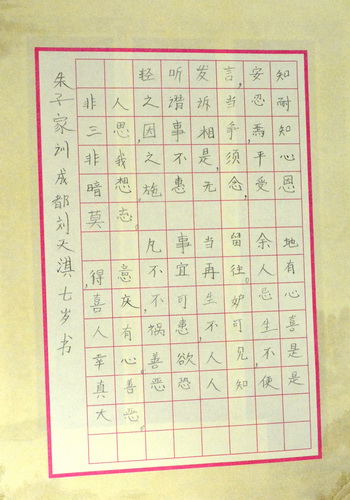 轻听发言,安知
非人之谮诉,当忍耐
三思,因事相争,焉知
非我之不是,须平心
暗想。施惠无念,受恩
莫忘。
凡事当留余地
,得意不宜再往。人有
喜庆,不可生妒忌心
人有祸患,不可生喜
幸心。善欲人见,不是
真善恶恐人知便是
大恶。
朱子家训成都刘天淇七岁书